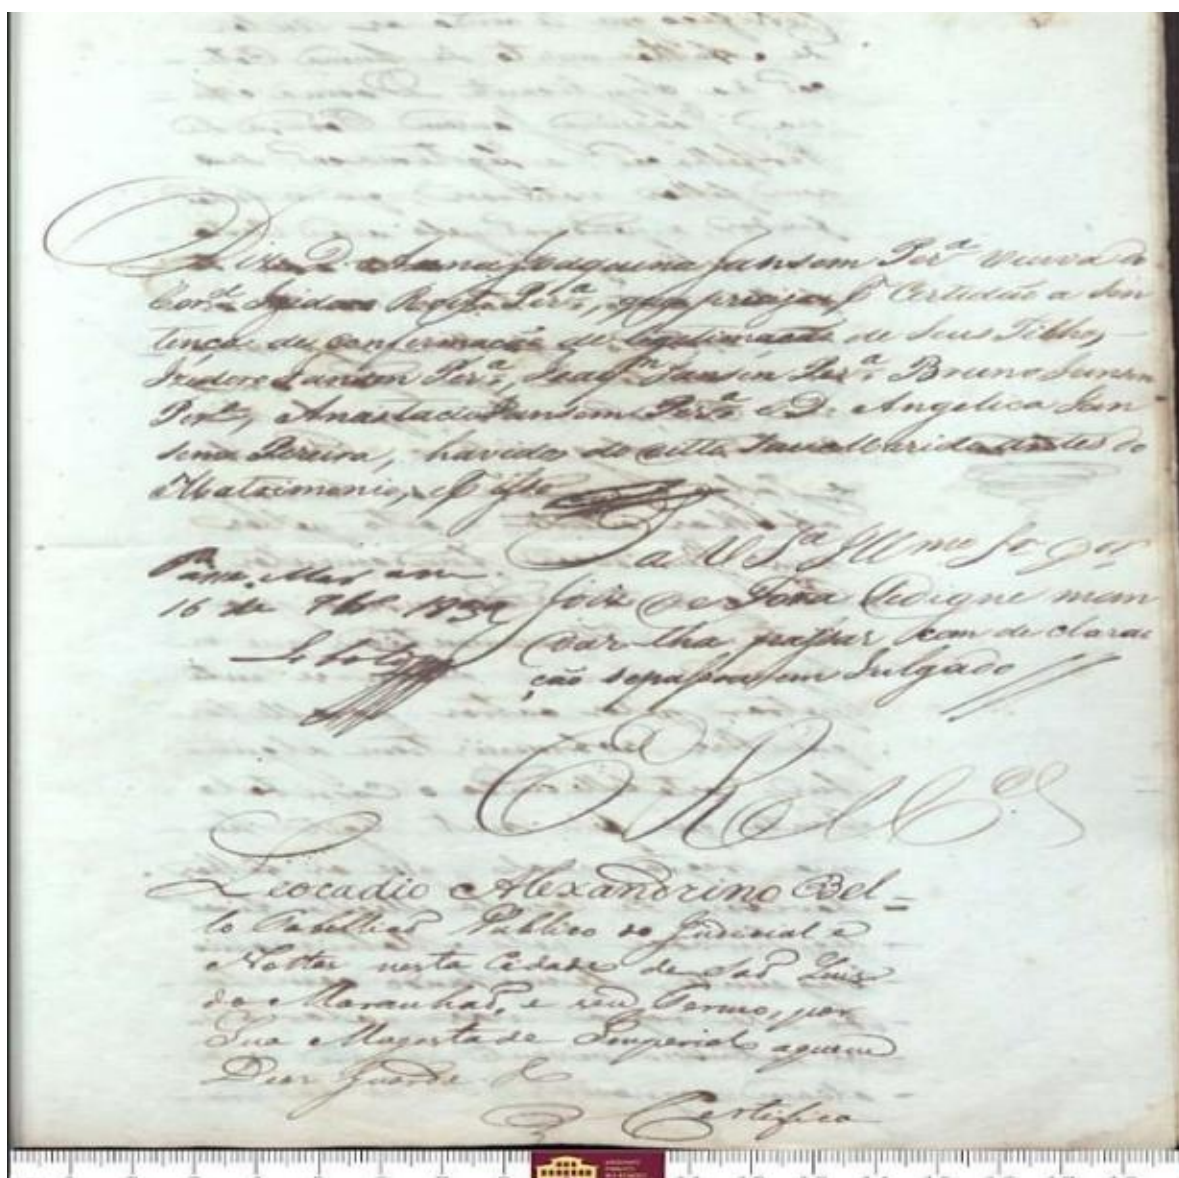 Diz D. Anna Joaquina Jansem Per.ª viuva do
Cor.el Izidoro Roiz Per.ª, que preciza p.r Certidaõ a Sen
tença de confirmação de legitimação de Seus Filhos,
Izidoro Jansem Per.ª, Joaq.m Jansem Per.ª Bruno Jansem
Per.ª, Anastacio Jansem Per.ª e D. Angelica Jan
sem Pereira, havidos do ditto Seu Marido antes do
Matrimonio, e p.r isso
P. a V. S.ª Ill.mo Sr. D.or
Juiz de Fora Se digne man
dar lha passar com declara
ção se passou em Julgado
Passe. Mar.am
16 de 7br.o
E R M.ce
Leocadio Alexandrino Bel=
lo Tabelliaõ Publico do Judicial e
Nottas nesta Cidade de Saõ Luis
do Maranhaõ, e seu Termo, por
Sua Magestade Imperial aquem
Deos Guarde &
Certifico